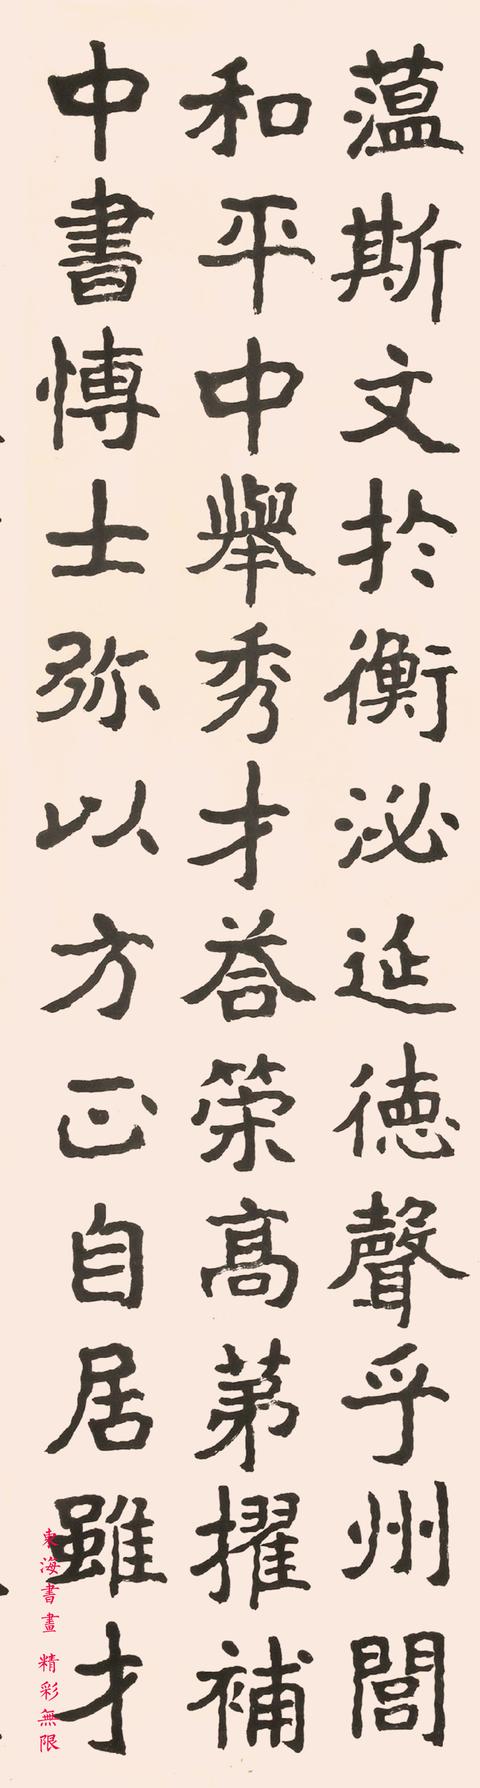 薀斯文於衡泌延德聲乎州閭
和平中舉秀才荅荣高苐擢補
中書愽士弥以方正自居雖才
東海書畫 精彩無限